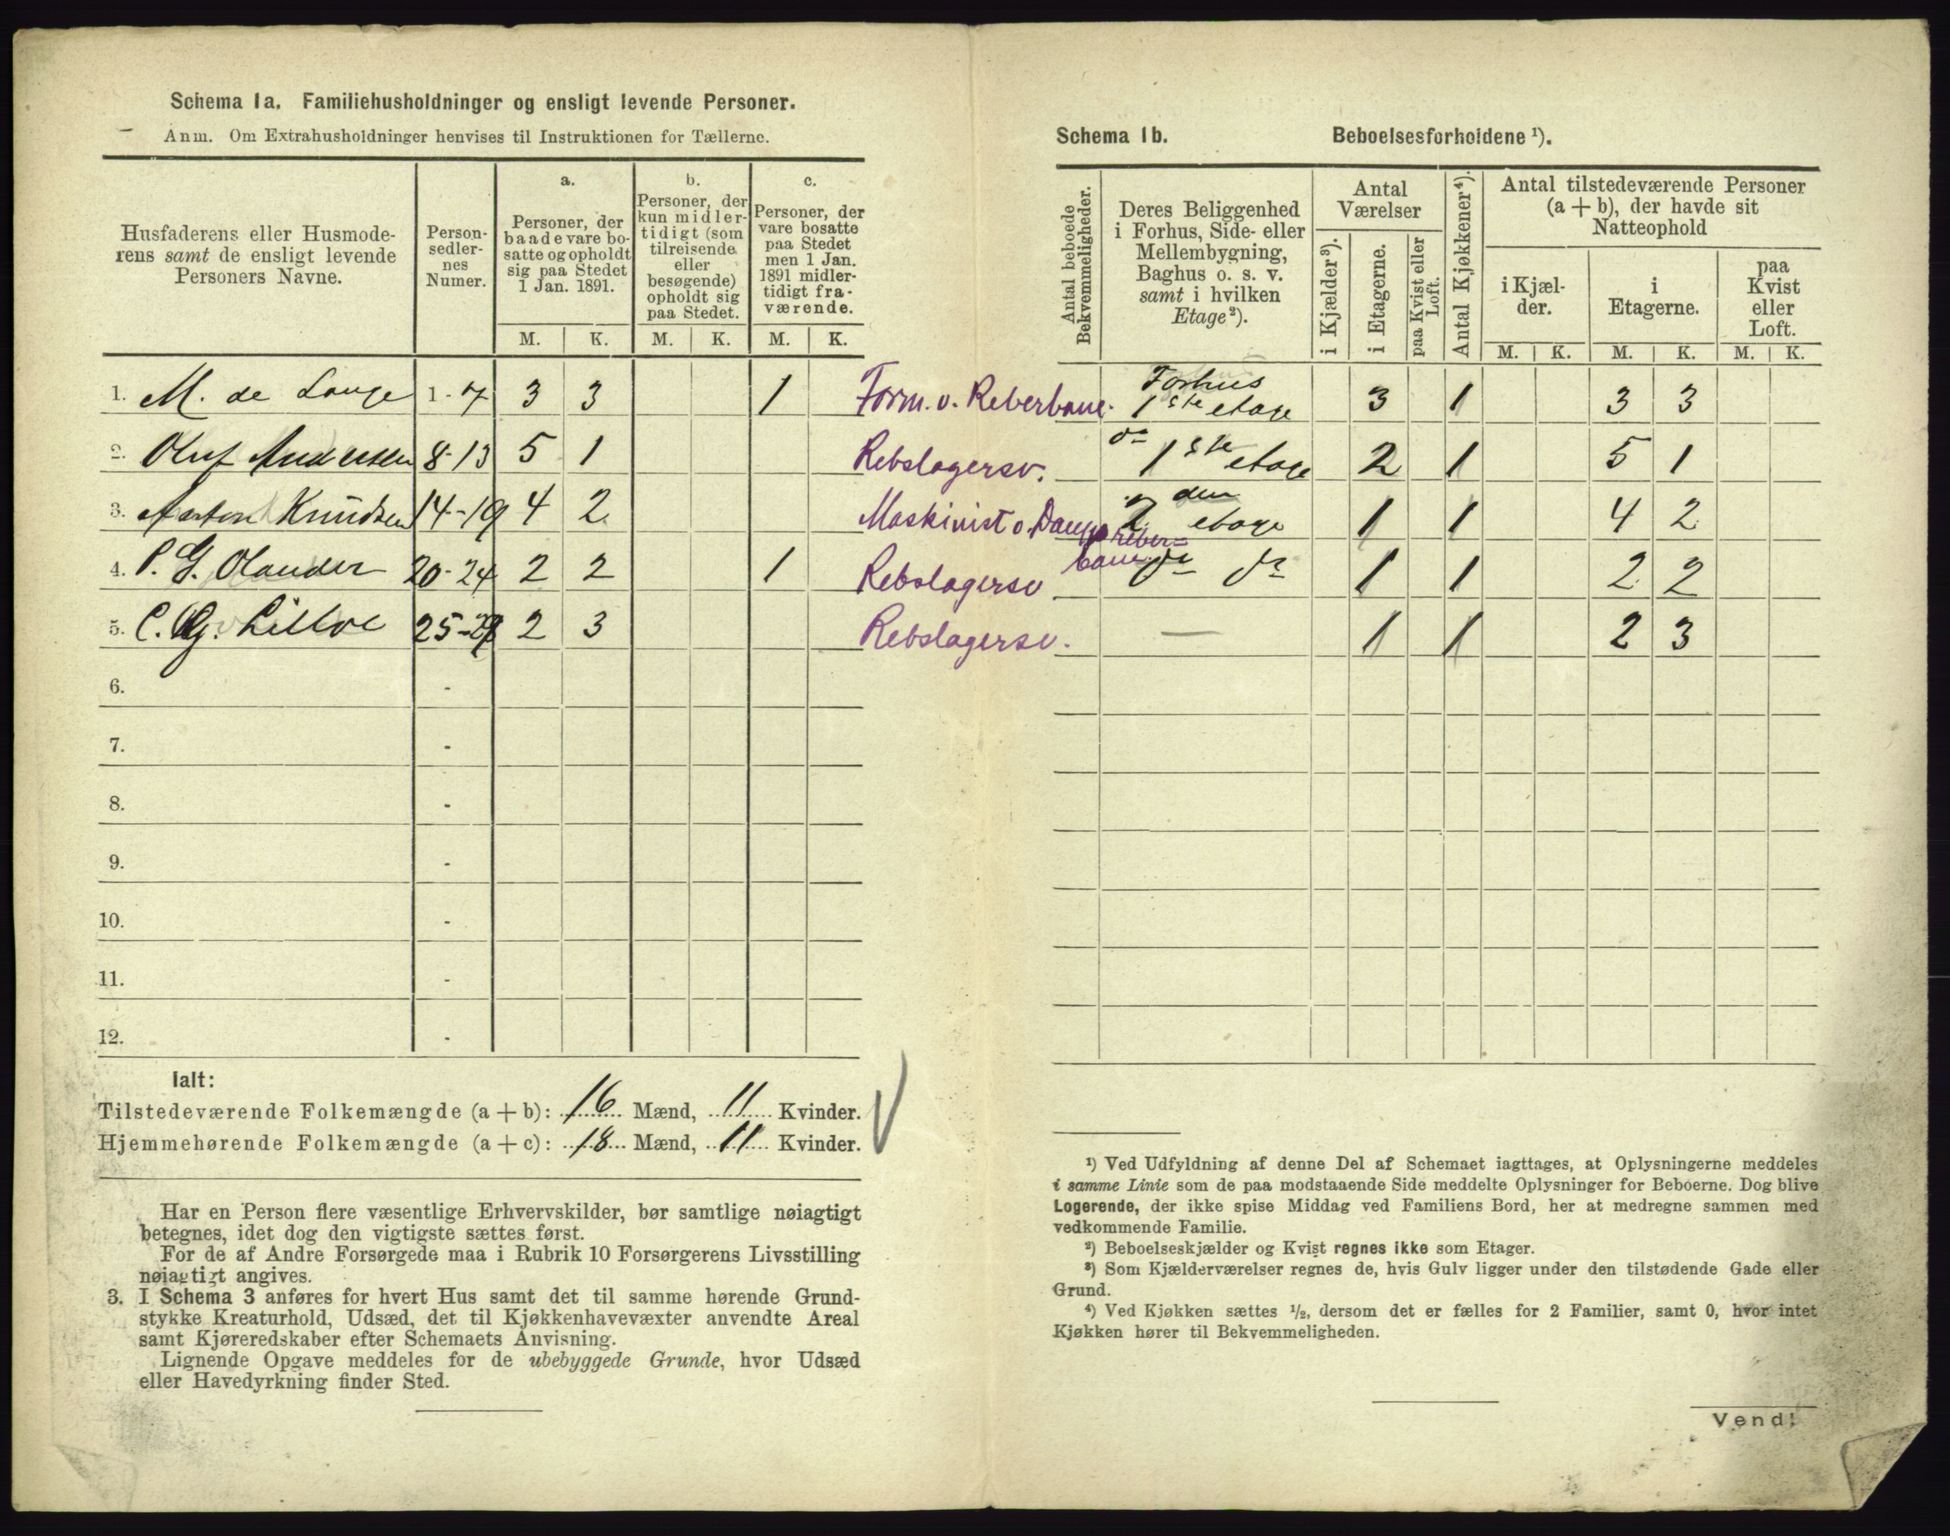 Schema 1a. Familiehusholdninger og ensligt levende Personer.
Anm. Om Extrahusholdninger henvises til Instruktionen for Tællerne.
Husfaderens eller Husmode-
rens samt de ensligt levende
Personers Navne.
Person-
sedler-
nes
Numer.
a.
Personer, der
baade vare bo-
satte og opholdt
sig paa Stedet
1 Jan. 1891.
b.
Personer, der
kun midler-
tidigt (som
tilreisende
eller
besøgende)
opholdt sig
paa Stedet.
c.
Personer, der
vare bosatte
paa Stedet
men 1 Jan.
1891 midler-
tidigt fra-
værende.
M. K. M. K. M. K.
1. M. de Lange 1-7 3 3 1 Form. v. Reberbane.
2. Oluf Andersen 8-13 5 1 Rebslagersv.
3. Anton Knudsen 14-19 4 2 Maskinist v. Damp reber=
bane
4. P. G. Olander 20-24 2 2 1 Rebslagersv.
5. C. G. 25-29 2 3 Rebslagersv.
6. -
7. -
8. -
9. -
10. -
11. -
12. -
Ialt:
Tilstedeværende Folkemængde (a + b): 16 Mænd, 11 Kvinder.
Hjemmehørende Folkemængde (a + c): 18 Mænd, 11 Kvinder.
Har en Person flere væsentlige Erhvervskilder, bør samtlige nøiagtigt
betegnes, idet dog den vigtigste sættes først.
For de af Andre Forsørgede maa i Rubrik 10 Forsørgerens Livsstilling
nøiagtigt angives.
3. I Schema 3 anføres for hvert Hus samt det til samme hørende Grund-
stykke Kreaturhold, Udsæd, det til Kjøkkenhavevæxter anvendte Areal
samt Kjøreredskaber efter Schemaets Anvisning.
Lignende Opgave meddeles for de ubebyggede Grunde, hvor Udsæd
eller Havedyrkning finder Sted.
Schema 1b. Beboelsesforholdene ¹).
Antal beboede
Bekvemmeligheder.
Deres Beliggenhed
i Forhus, Side- eller
Mellembygning,
Baghus o. s. v.
samt i hvilken
Etage ²).
Antal
Værelser
i Kjælder ³).
i Etagerne.
paa Kvist eller
Loft.
Antal Kjøkkener ⁴).
Antal tilstedeværende Personer
(a + b), der havde sit
Natteophold
i Kjæl-
der.
i
Etagerne.
paa
Kvist
eller
Loft.
M. K. M. K. M. K.
Forhus
1ste etage 3 1 3 3
do 1ste etage 2 1 5 1
2den etage 1 1 4 2
do do 1 1 2 2
— 1 1 2 3
¹) Ved Udfyldning af denne Del af Schemaet iagttages, at Oplysningerne meddeles
i samme Linie som de paa modstaaende Side meddelte Oplysninger for Beboerne. Dog blive
Logerende, der ikke spise Middag ved Familiens Bord, her at medregne sammen med
vedkommende Familie.
²) Beboelseskjælder og Kvist regnes ikke som Etager.
³) Som Kjælderværelser regnes de, hvis Gulv ligger under den tilstødende Gade eller
Grund.
⁴) Ved Kjøkken sættes ½, dersom det er fælles for 2 Familier, samt 0, hvor intet
Kjøkken hører til Bekvemmeligheden.
Vend!